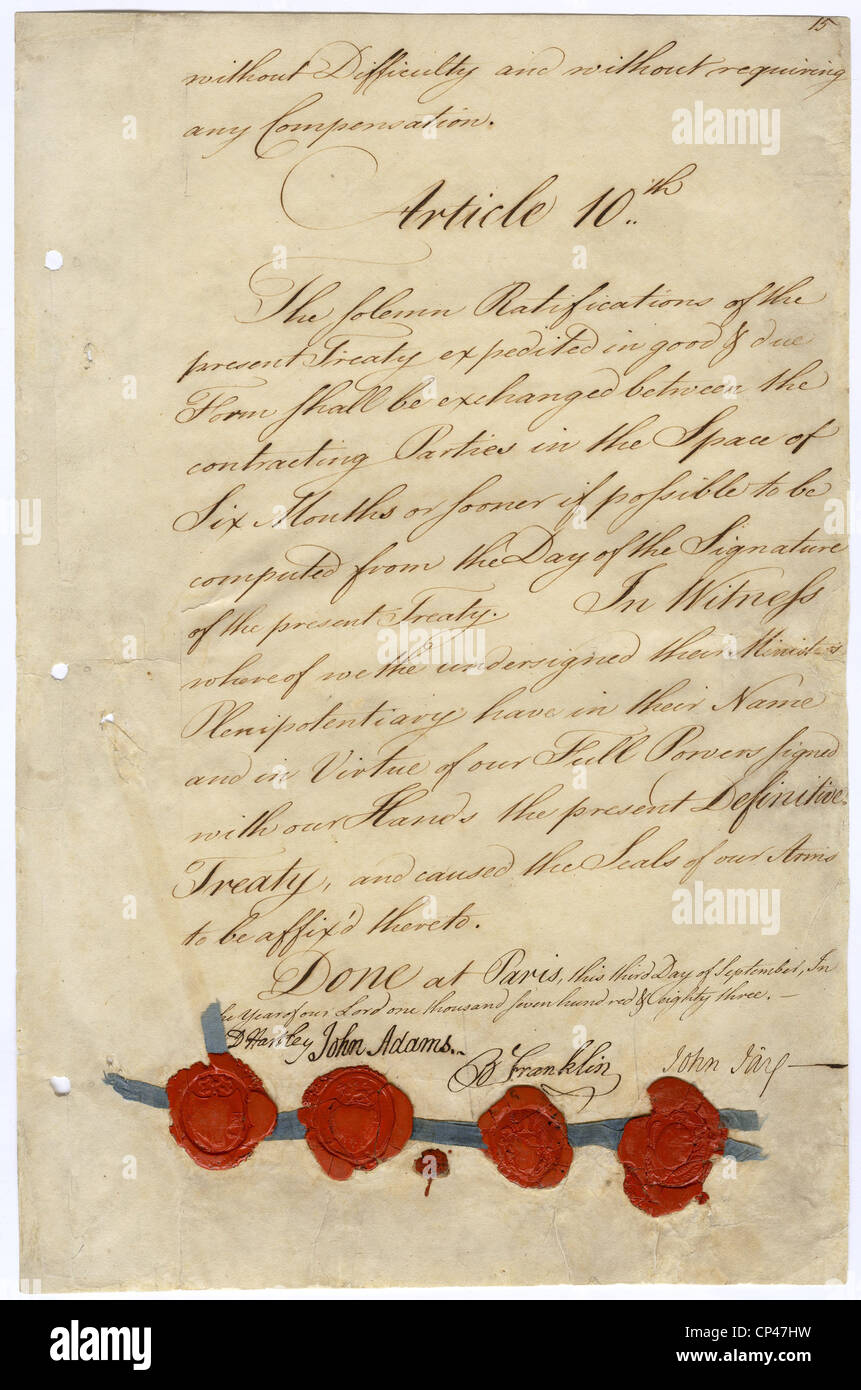 15
without Difficulty and without requiring
any Compensation.
Article 10.th
The solemn Ratifications of the
present Treaty expedited in good & due
Form shall be exchanged between the
contracting Parties in the Space of
Six Months or sooner if possible to be
computed from the Day of the Signature
of the present Treaty. In Witness
whereof we the undersigned their Ministers
Plenipotentiary have in their Name
and in Virtue of our Full Powers signed
with our Hands the present Definitive
Treaty, and caused the Seals of our Arms
to be affix'd thereto.
Done at Paris, this third Day of September, In
Year of our Lord one thousand seven hundred & eighty three.—
D Hartley John Adams. B Franklin John Jay—
a alamy
alamy stock photo
CP47HW
www.alamy.com